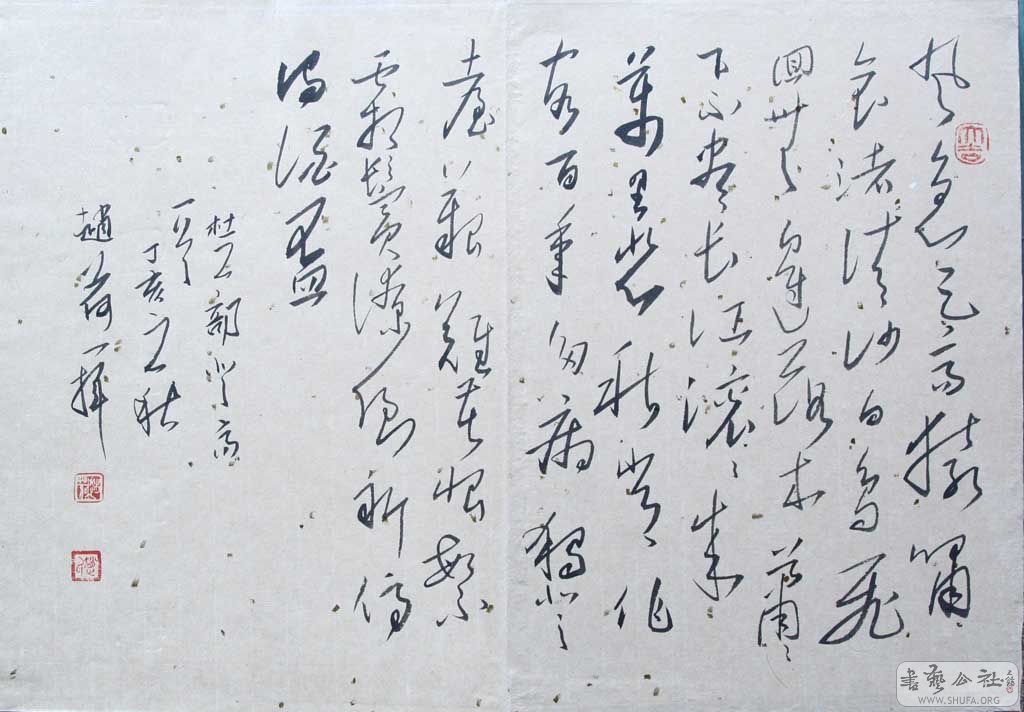 風急天高猿嘯
哀渚清沙白鳥飛
回無邊落木蕭〻
下不盡長江滾〻來
萬里悲秋常作
客百年多病獨登
臺艱難苦恨繁
霜鬢潦倒新停
濁酒盃
杜工部登高
一首
丁亥之秋
趙荷一揮
書藝公社
WWW.SHUFA.ORG